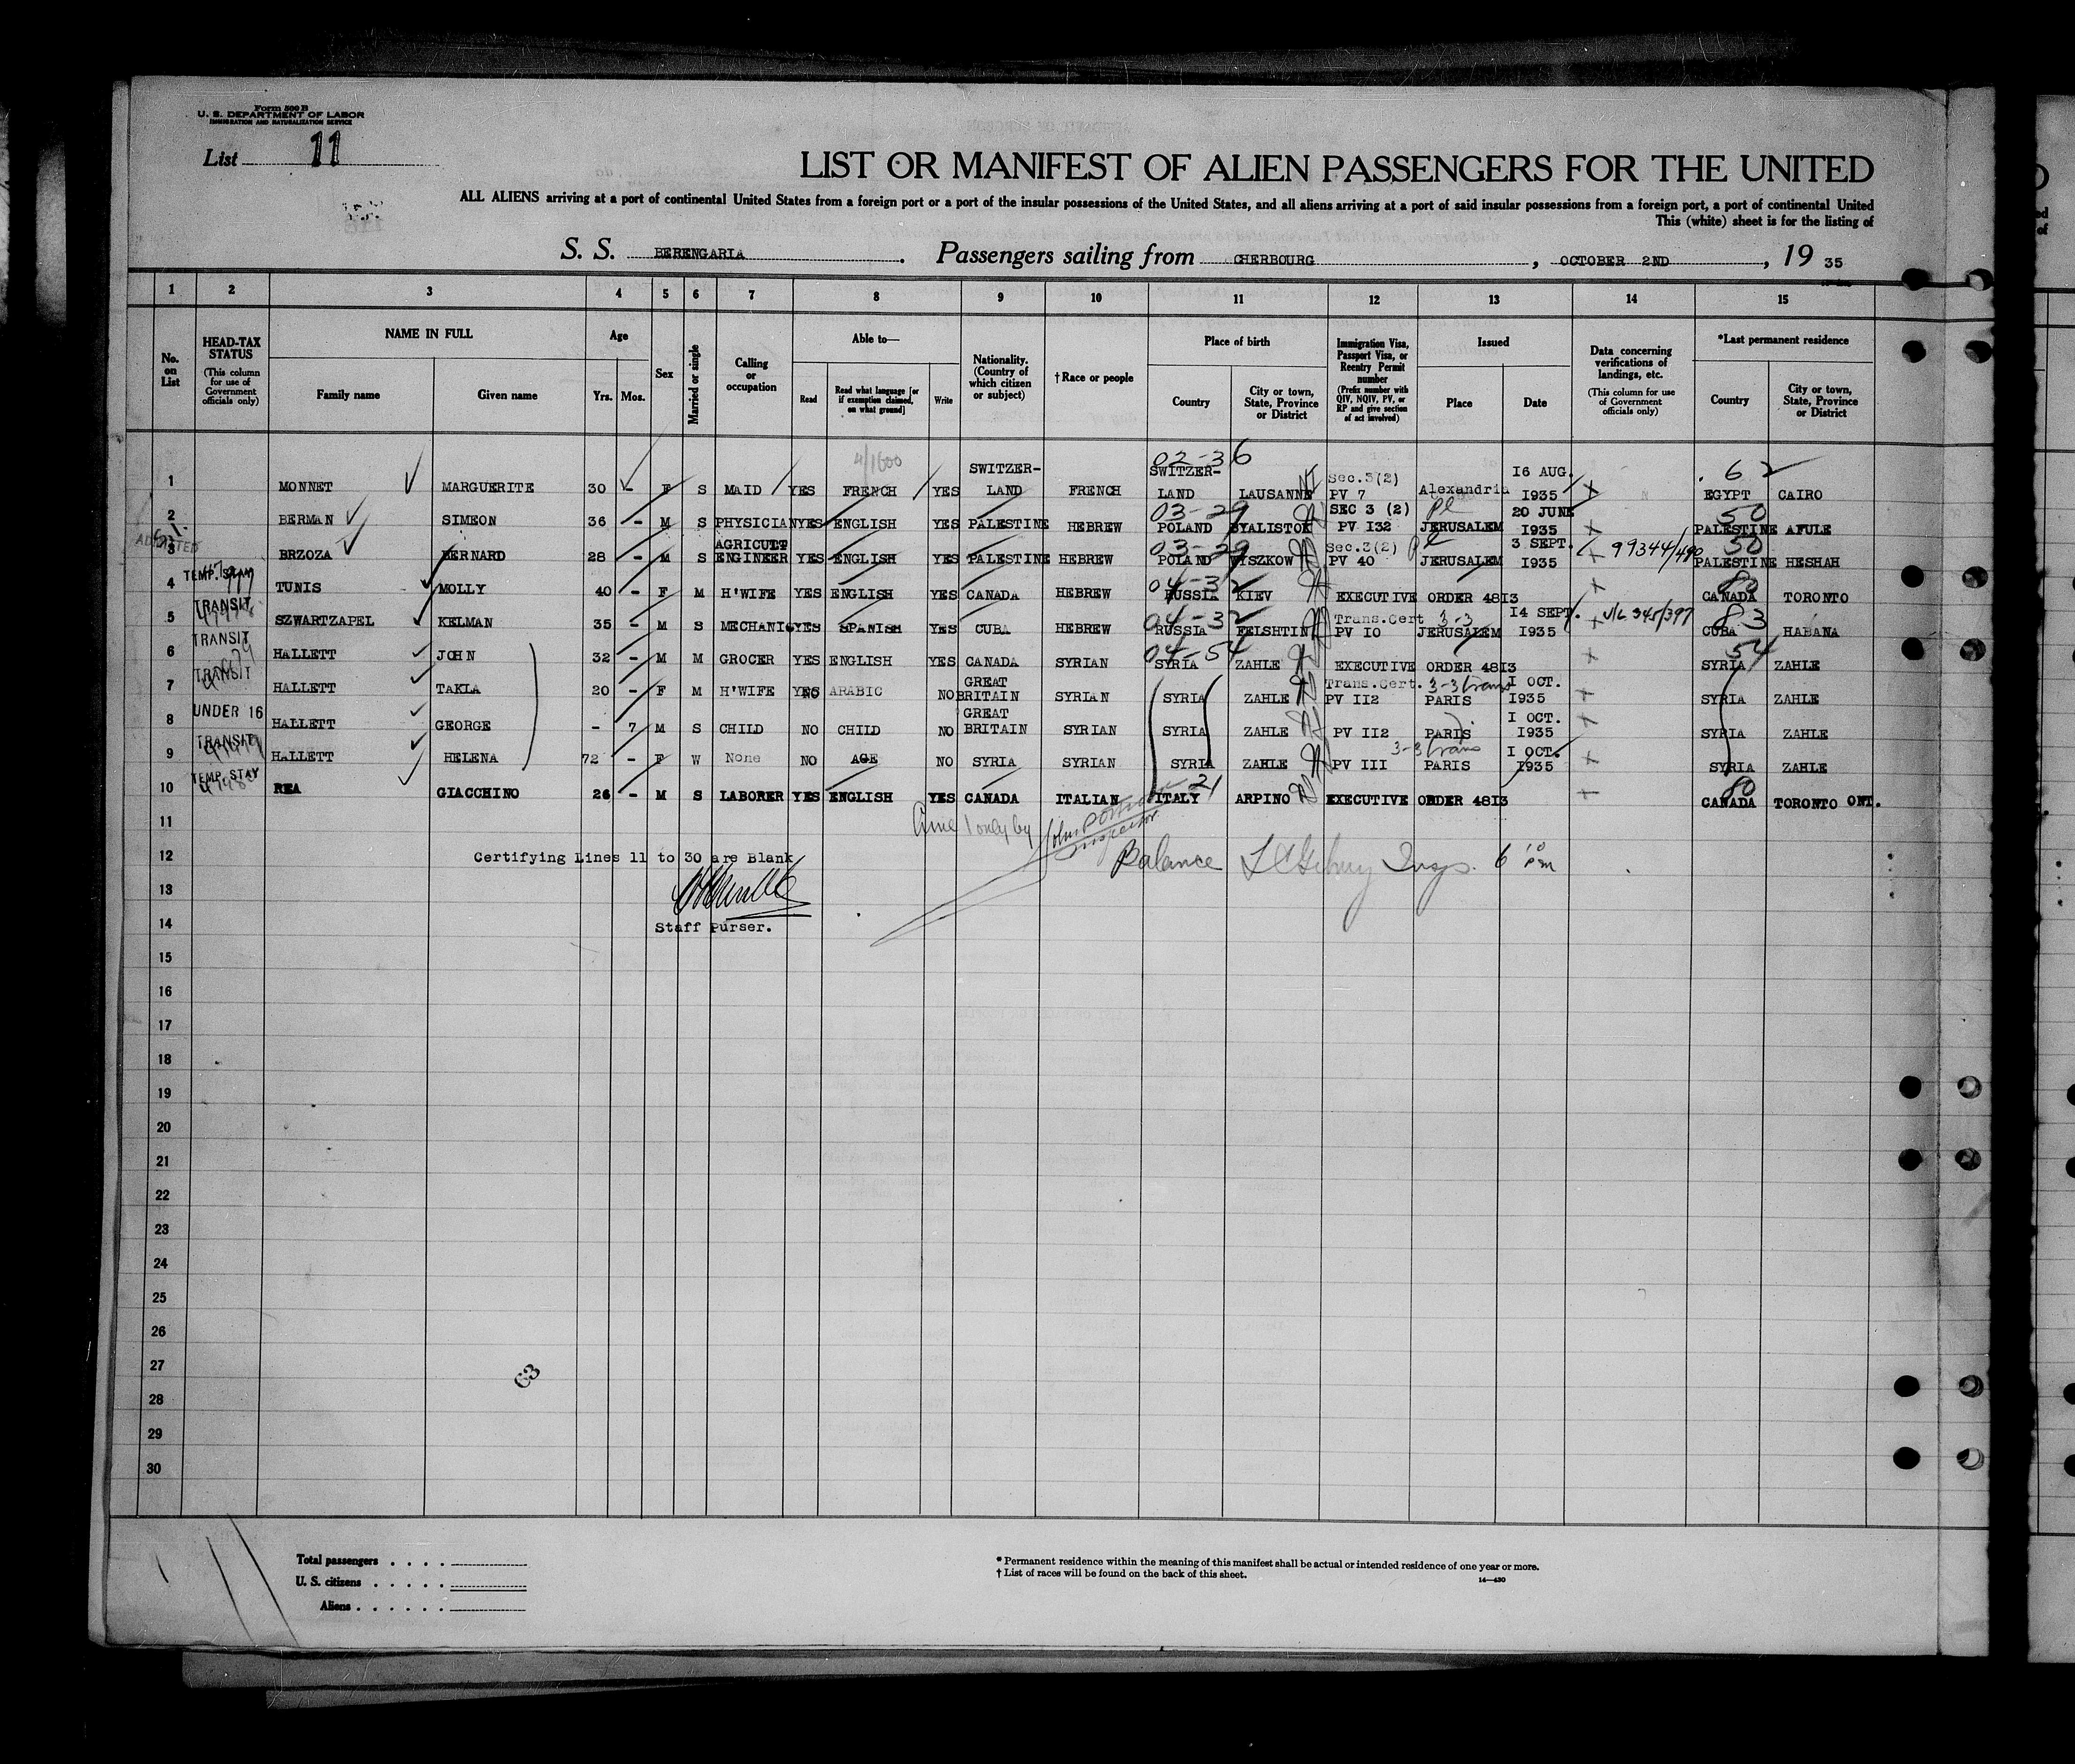 Form 500 B
U. S. DEPARTMENT OF LABOR
IMMIGRATION AND NATURALIZATION SERVICE
List 11
LIST OR MANIFEST OF ALIEN PASSENGERS FOR THE UNITED
ALL ALIENS arriving at a port of continental United States from a foreign port or a port of the insular possessions of the United States, and all aliens arriving at a port of said insular possessions from a foreign port, a port of continental United
This (white) sheet is for the listing of
S. S. BERENGARIA. Passengers sailing from CHERBOURG, OCTOBER 2ND, 19 35
1 2 3 4 5 6 7 8 9 10 11 12 13 14 15
No. on List
HEAD-TAX STATUS (This column for use of Government officials only)
NAME IN FULL Family name Given name
Age Yrs. Mos.
Sex
Married or single
Calling or occupation
Able to— Read Read what language [or if exemption claimed, on what ground] Write
Nationality. (Country of which citizen or subject)
†Race or people
Place of birth Country City or town, State, Province or District
Immigration Visa, Passport Visa, or Reentry Permit number (Prefix number with QIV, NQIV, PV, or RP and give section of act involved)
Issued Place Date
Data concerning verifications of landings, etc. (This column for use of Government officials only)
*Last permanent residence Country City or town, State, Province or District
4/1600 02-36 62
1 MONNET MARGUERITE 30 - F S MAID YES FRENCH YES SWITZER-LAND FRENCH SWITZER-LAND LAUSANNE Sec.3(2) PV 7 Alexandria 16 AUG. 1935 EGYPT CAIRO
03-29 50
2 BERMAN SIMEON 36 - M S PHYSICIAN YES ENGLISH YES PALESTINE HEBREW POLAND BYALISTOK SEC 3 (2) PV 132 JERUSALEM 20 JUNE 1935 PALESTINE AFULE
03-29 50
3 ADMITTED BRZOZA BERNARD 28 - M S AGRICULT ENGINEER YES ENGLISH YES PALESTINE HEBREW POLAND WYSZKOW Sec.3(2) PV 40 JERUSALEM 3 SEPT. 1935 99344/490 PALESTINE HESHAH
04-32 80
4 TEMP. STAY TUNIS MOLLY 40 - F M H'WIFE YES ENGLISH YES CANADA HEBREW RUSSIA KIEV EXECUTIVE ORDER 4813 CANADA TORONTO
04-32 83
5 TRANSIT SZWARTZAPEL KELMAN 35 - M S MECHANIC YES SPANISH YES CUBA HEBREW RUSSIA FELSHTIN Trans.Cert 3-3 PV 10 JERUSALEM 14 SEPT. 1935 V/L 345/397 CUBA HABANA
04-54 54
6 TRANSIT HALLETT JOHN 32 - M M GROCER YES ENGLISH YES CANADA SYRIAN SYRIA ZAHLE EXECUTIVE ORDER 4813 SYRIA ZAHLE
7 TRANSIT HALLETT TAKLA 20 - F M H'WIFE YES NO ARABIC NO GREAT BRITAIN SYRIAN SYRIA ZAHLE Trans.Cert. 3-3 trans PV 112 PARIS 1 OCT. 1935 SYRIA ZAHLE
8 UNDER 16 HALLETT GEORGE - 7 M S CHILD NO CHILD NO GREAT BRITAIN SYRIAN SYRIA ZAHLE PV 112 PARIS 1 OCT. 1935 SYRIA ZAHLE
9 TRANSIT HALLETT HELENA 72 - F W None NO AGE NO SYRIA SYRIAN SYRIA ZAHLE PV 111 3-3 trans PARIS 1 OCT. 1935 SYRIA ZAHLE
21 80
10 TEMP. STAY REA GIACCHINO 26 - M S LABORER YES ENGLISH YES CANADA ITALIAN ITALY ARPINO EXECUTIVE ORDER 4813 CANADA TORONTO ONT.
11 Line 1 only by Inspector
12 Certifying Lines 11 to 30 are Blank Balance Insp. 6 10 pm
13
14 Staff Purser.
15
16
17
18
19
20
21
22
23
24
25
26
27
63
28
29
30
Total passengers
U. S. citizens
Aliens
* Permanent residence within the meaning of this manifest shall be actual or intended residence of one year or more.
† List of races will be found on the back of this sheet.
14—430